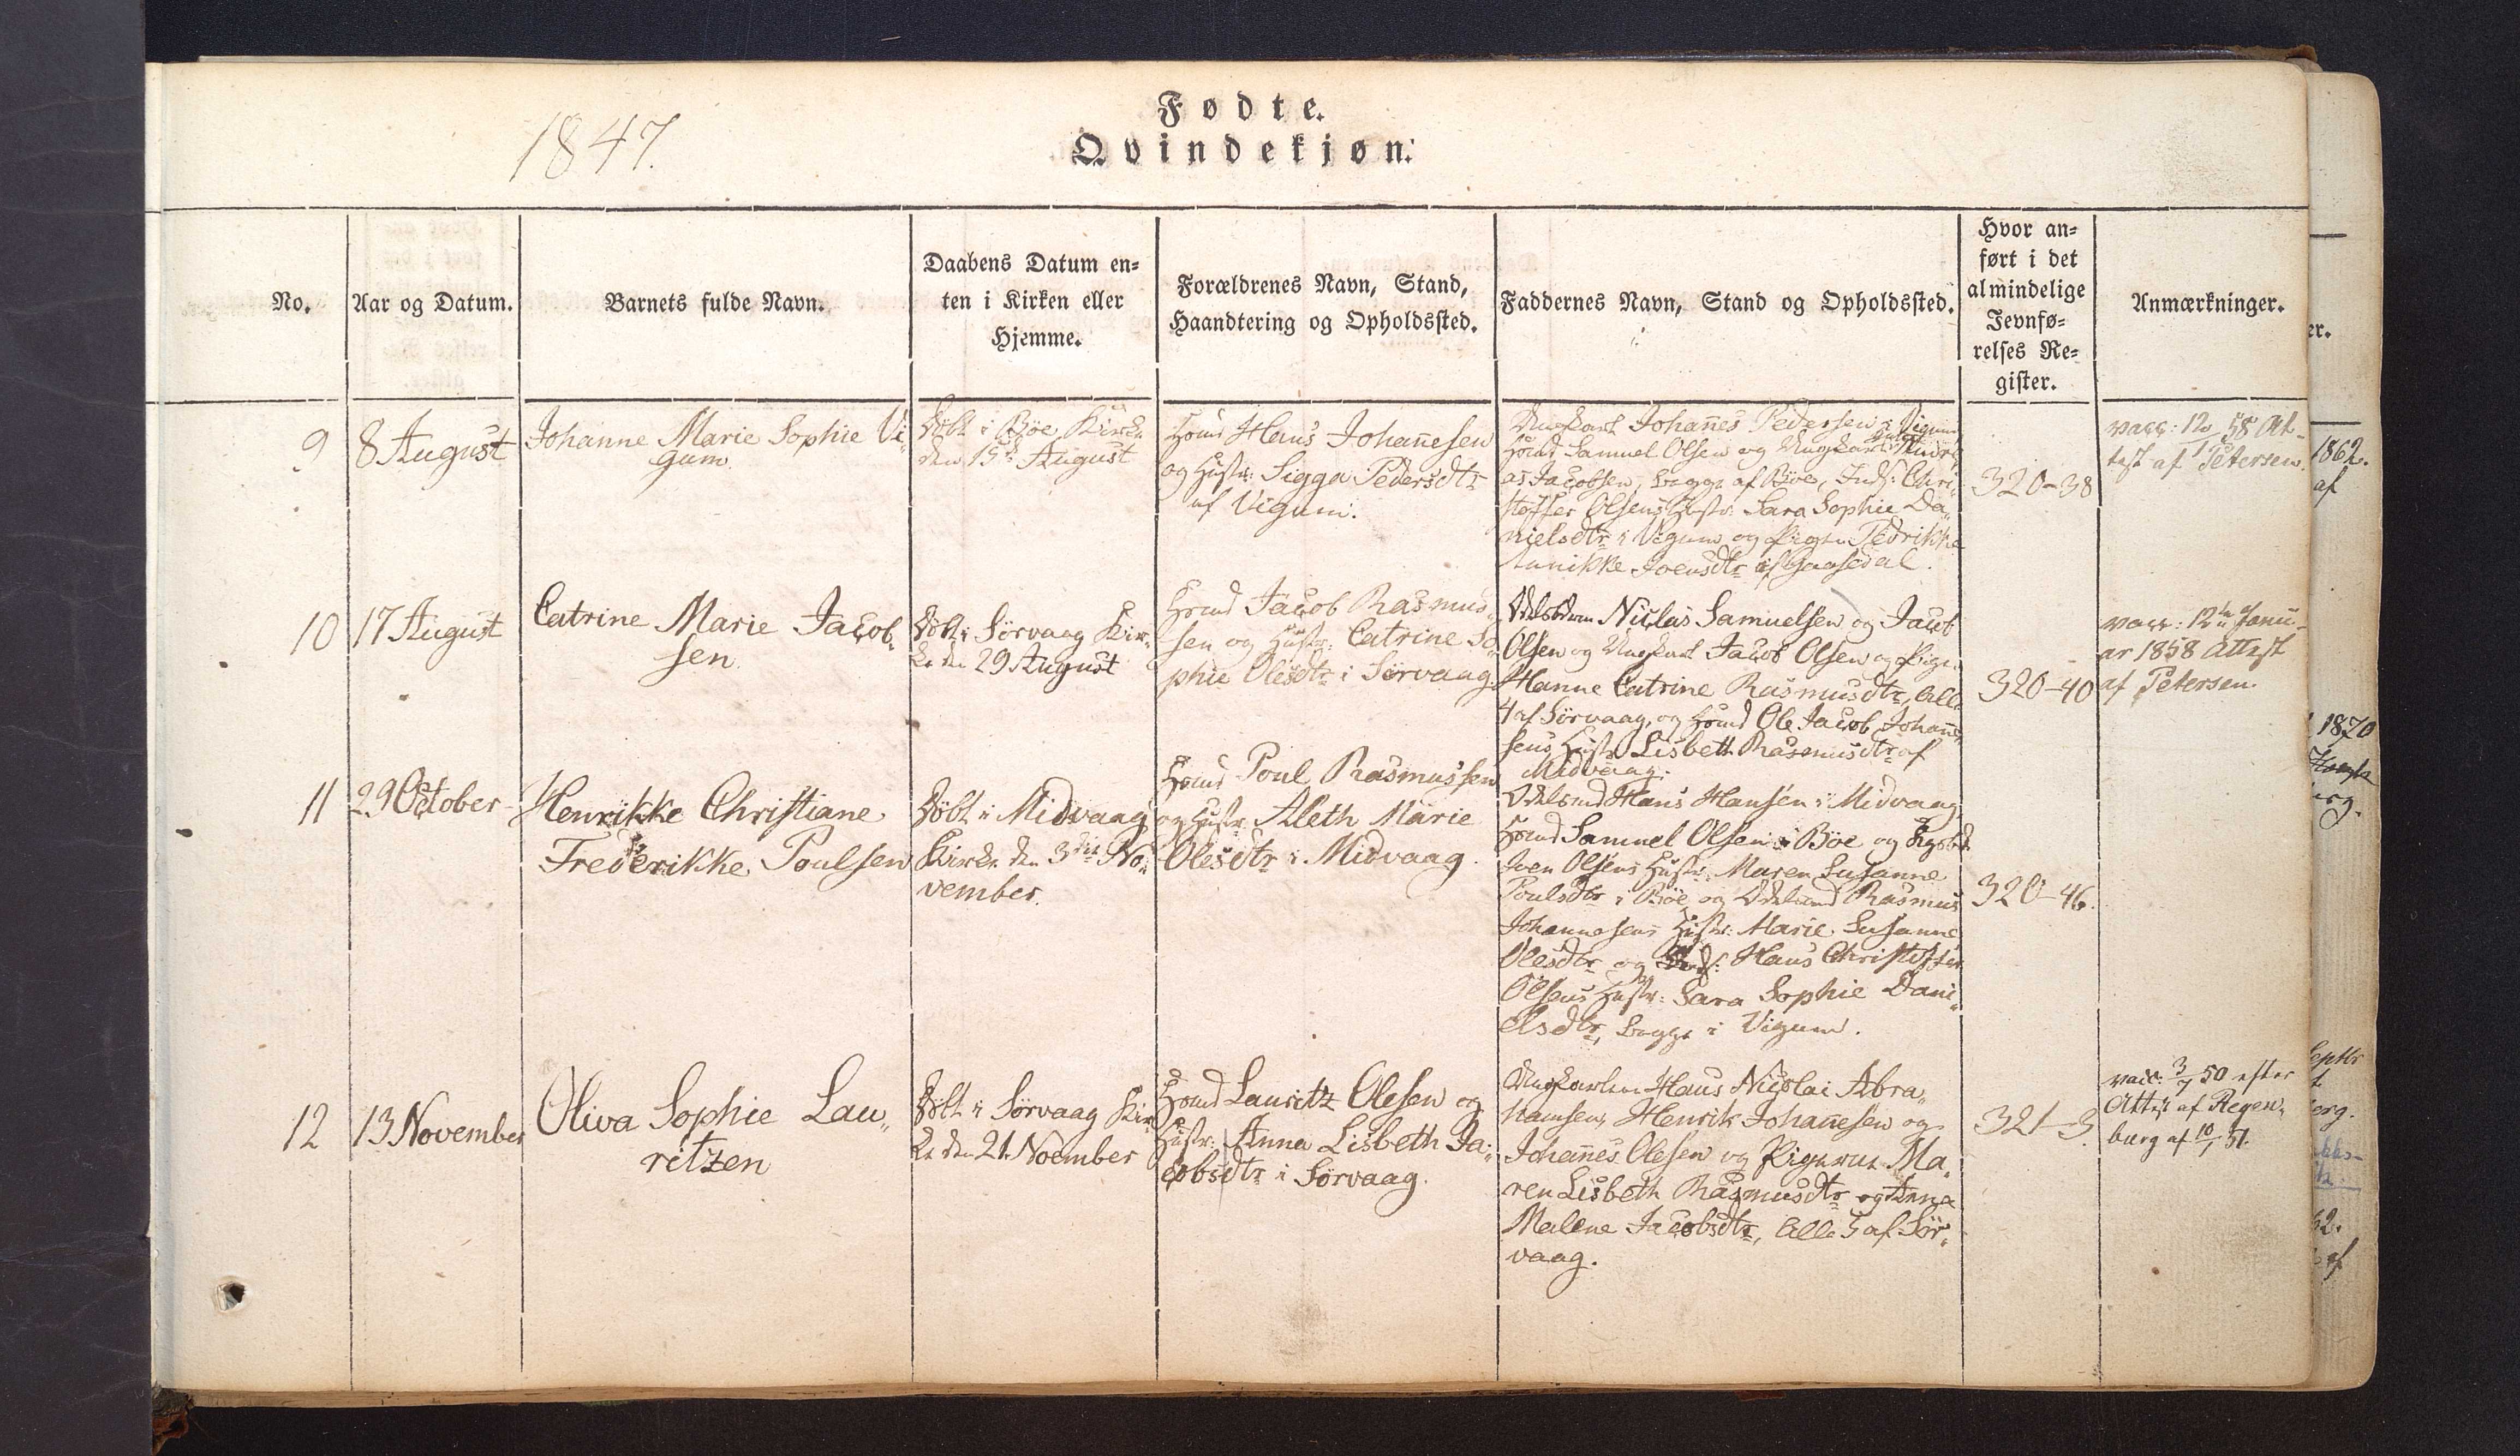 1847.
Fødte.
Qvindekjøn.
No.
Aar og Datum.
Barnets fulde Navn.
Daabens Datum en-
ten i Kirken eller
Hjemme.
Forældrenes Navn, Stand,
Haandtering og Opholdssted.
Faddernes Navn, Stand og Opholdssted.
Hvor an-
ført i det
almindelige
Jevnfø-
relses Re-
gister.
Anmærkninger.
9
8 August
Johanne Marie Sophie Vi-
gum
Döbt i Böe Kirke
den 15de August
Hsmd Hans Johannesen
og Hustr: Sigga Pedersdtr
af Vigum.
Ungkarl Johannes Pedersen i Vigum
Hsmd Samuel Olsen og Ungkarl
as Jacobsen, begge af Böe, Inds: Chri-
stoffer Olsens Hustr: Sara Sophie Da-
nielsdtr i Vigum og Pigen Pedrikke
Joensdtr af Gaasedal.
320-38
vacc: 58 At-
test af Petersen.
10
17 August
Catrine Marie Jacob-
sen
Döbt i Sörvaag Kir-
ke den 29 August
Hsmd Jacob Rasmus-
sen og Hustr: Catrine So-
phie Olesdtr i Sörvaag.
Niclas Samuelsen og Jacob
Olsen og Ungkarl Jacob Olsen og Pige
Hanne Catrine Rasmusdtr, alle
4 af Sörvaag, og Hsmd Ole Jacob Johanne-
sens Hustr Lisbeth Rasmusdtr af
Midvaag.
320-40
vacc: 12te Janu-
ar 1858 Attest
af Petersen.
11
29 October
Henrikke Christiane
Frederikke Poulsen
Döbt i Midvaag
Kirke den 3die No-
vember.
Hsmd Poul Rasmussen
og Hustr. Aleth Marie
Olesdtr i Midvaag.
Odelsmd Hans Hansen i Midvaag
Hsmd Samuel Olsen i Böe og
Joen Olsens Hustr. Maren Susanne
Poulsdtr i Böe og Odelsmd Rasmus
Johannesens Hustr: Marie Susanne
Olesdtr og Inds: Hans Christoffer
Olsens Hustr: Sara Sophie Dani-
elsdtr, begge i Vigum.
320-46.
12
13 November
Oliva Sophie Lau-
ritzen
Döbt i Sörvaag Kir-
ke den 21 Noember
Hsmd Lauritz Olesen og
Hustr: Anna Lisbeth Ja-
cobsdtr i Sörvaag.
Ungkarlene Hans Nicolai Abra-
hamsen, Henrik Johannesen og
Johannes Olesen og Pigerne Ma-
ren Lisbeth Rasmusdtr og Anna
Malene Jacobsdtr, alle 5 af Sör-
vaag.
321-3.
vacc: 3/7 50 efter
Attest af Regen-
burg af 10/1 51.
er.
1862.
af
1870
erg.
af